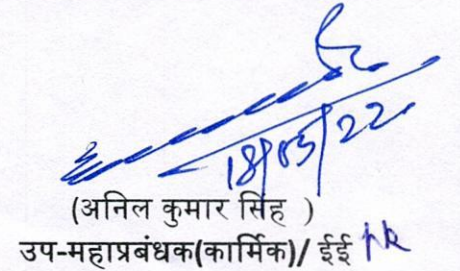 18/05/22
(अनिल कुमार सिंह )
उप-महाप्रबंधक(कार्मिक)/ ईई